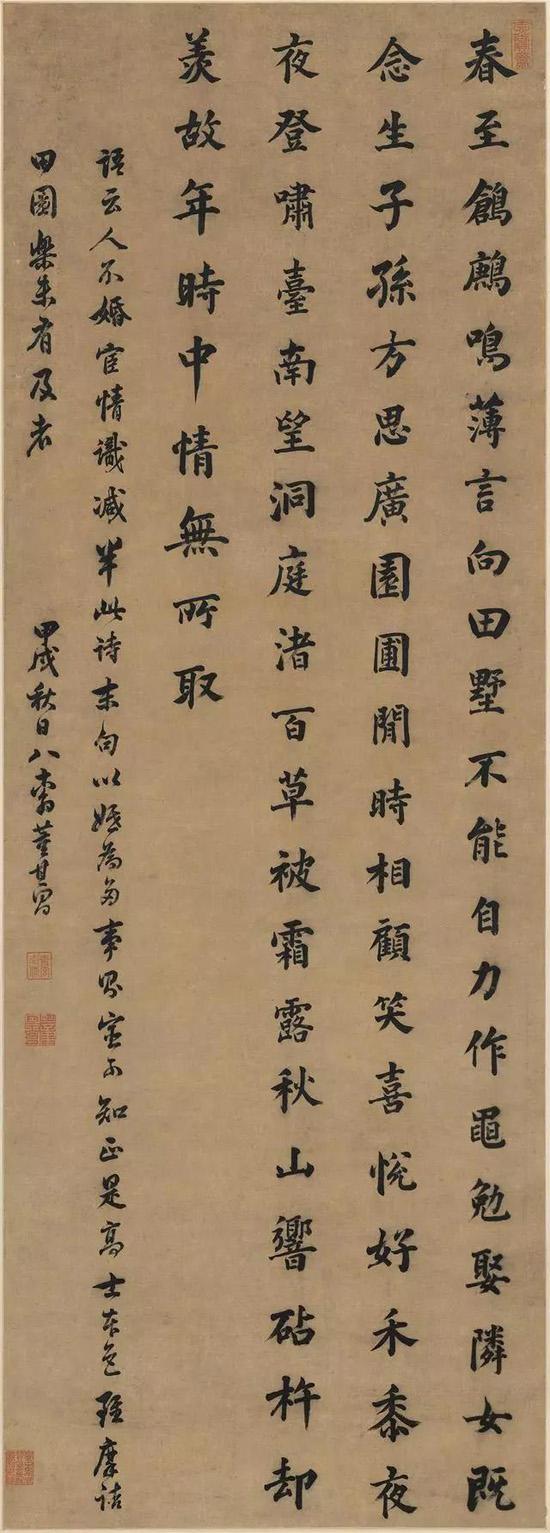 春至鶬鶊鳴薄言向田墅不能自力作黽勉娶隣女既
念生子孫方思廣園圃閒時相顧笑喜悅好禾黍夜
夜登嘯臺南望洞庭渚百草被霜露秋山響砧杵却
羨故年時中情無所取
語云人不婚宦情識減半此詩末句以婚為多事
知正是高士本色 摩詰
田園樂未有及者
甲戌秋日八十翁董其昌